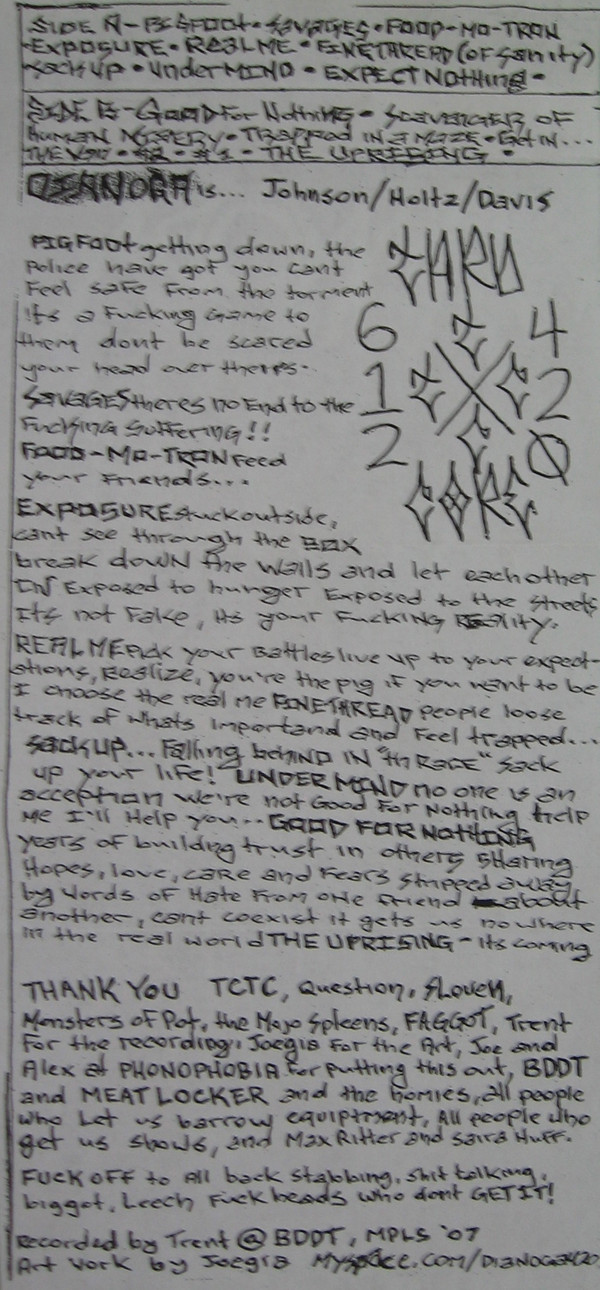 SIDE A- PIGFOOT • SAVAGES • FOOD-MO-TRON
EXPOSURE • REAL ME • FINETHREAD (of sanity)
SACK UP • UNDER MIND • EXPECT NOTHING •
SIDE B- GOOD For NotHING • SCAVENGER OF
Human MISERY • TRAPPED IN a MAZE • Get IN...
THE VAN • #2 • #1 • THE UPRISING •
is... Johnson/Holtz/Davis
PIGFOOT getting down, the
Police have got you cant
Feel safe From the torment
its a Fucking Game to
them dont be scared
your head over theres-
SAVAGES theres no End to the
FucKING SuffERING!!
FOOD-MO-TRON Feed
your Friends...
ZARD
6 4
1 2
2 0
CORE
EXPOSURE stuck outside,
cant see through the BOX
break down the walls and let each other
IN Exposed to hunger Exposed to the streets
Its not Fake, its your FucKING REality.
REAL ME Pick your Battles live up to your expect-
ations, REalize, you're the pig if you want to be
I choose the real me FINETHREAD people loose
track of whats importand and Feel trapped...
SACK UP... Falling beHIND IN "th RACE" Sack
up your life! UNDER MIND no one is an
acception we're not Good For Nothing help
Me I'll Help you... GOOD FOR NOTHING
years of building trust in others sHaring
Hopes, love, caRe and Fears stripped away
by words of Hate From one Friend about
another, cant coexist it gets us nowhere
in the real world THE UPRISING - its coming
THANK YOU TCTC, Question, SLoveN,
Monsters of Pot, the Mojo Spleens, FAGGOT, Trent
For the recording, Joegia For the Art, Joe and
Alex at PHONOPHOBIA for putting this out, BDDT
and MEAT LOCKER and the homies, all people
who Let us barrow equiptment, All people who
get us shows, and Max Ritter and saira Huff.
FUCK OFF to All back stabbing, shit talking,
bigget, Leech Fuck heads who dont GET IT!
Recorded by Trent @ BDDT, MPLS '07
Art work by Joegia Myspace.com/Dianoga420